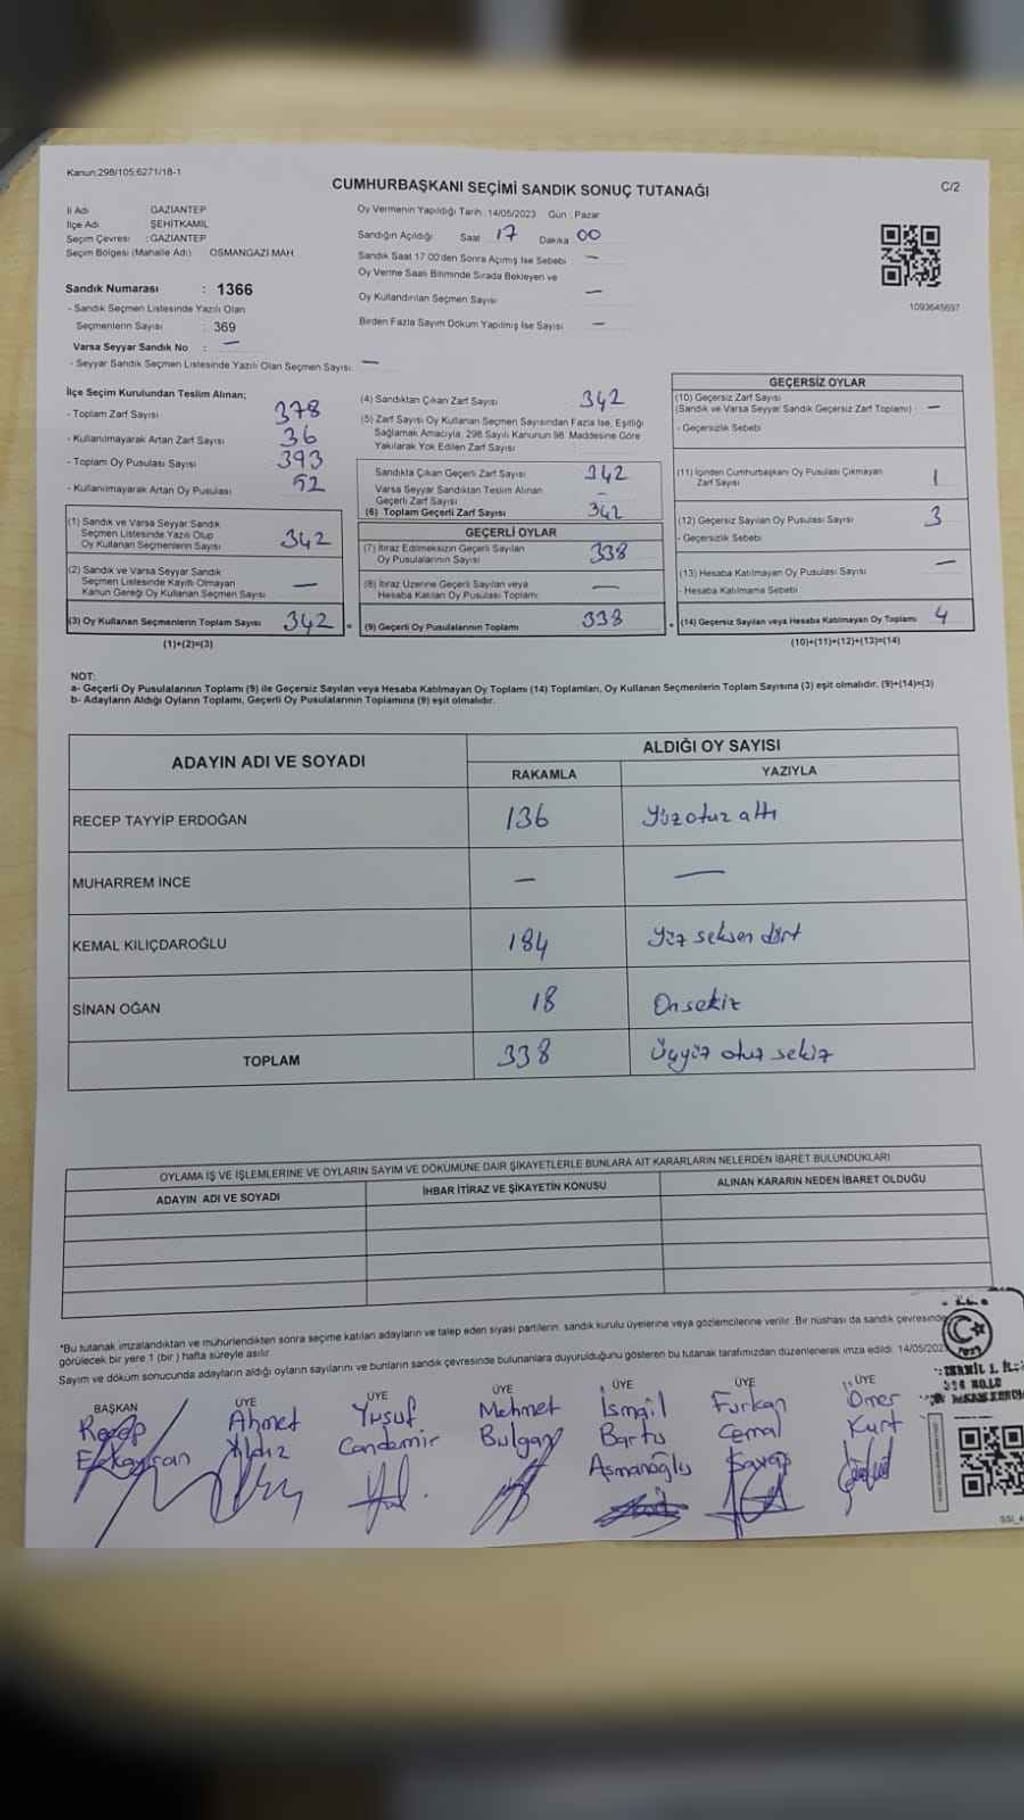 Kanun:298/105,6271/18-1
C/2
CUMHURBAŞKANI SEÇİMİ SANDIK SONUÇ TUTANAĞI
İl Adı GAZİANTEP
İlçe Adı ŞEHİTKAMİL
Seçim Çevresi :GAZİANTEP
Seçim Bölgesi (Mahalle Adı) OSMANGAZİ MAH
Sandık Numarası : 1366
- Sandık Seçmen Listesinde Yazılı Olan
Seçmenlerin Sayısı : 369
Varsa Seyyar Sandık No : —
- Seyyar Sandık Seçmen Listesinde Yazılı Olan Seçmen Sayısı: —
Oy Vermenin Yapıldığı Tarih: 14/05/2023 Gün : Pazar
Sandığın Açıldığı Saat 17 Dakika 00
Sandık Saat 17:00'den Sonra Açımış İse Sebebi : —
Oy Verme Saati Bitiminde Sırada Bekleyen ve
Oy Kullandırılan Seçmen Sayısı —
Birden Fazla Sayım Döküm Yapılmış İse Sayısı —
1093645697
İlçe Seçim Kurulundan Teslim Alınan;
- Toplam Zarf Sayısı 378
- Kullanılmayarak Artan Zarf Sayısı 36
- Toplam Oy Pusulası Sayısı 393
- Kullanılmayarak Artan Oy Pusulası 52
(1) Sandık ve Varsa Seyyar Sandık
Seçmen Listesinde Yazılı Olup
Oy Kullanan Seçmenlerin Sayısı 342
(2) Sandık ve Varsa Seyyar Sandık
Seçmen Listesinde Kayıtlı Olmayan
Kanun Gereği Oy Kullanan Seçmen Sayısı —
(3) Oy Kullanan Seçmenlerin Toplam Sayısı 342 =
(1)+(2)=(3)
(4) Sandıktan Çıkan Zarf Sayısı 342
(5) Zarf Sayısı Oy Kullanan Seçmen Sayısından Fazla İse, Eşitliği
Sağlamak Amacıyla, 298 Sayılı Kanunun 98. Maddesine Göre
Yakılarak Yok Edilen Zarf Sayısı
Sandıkta Çıkan Geçerli Zarf Sayısı 342
Varsa Seyyar Sandıktan Teslim Alınan
Geçerli Zarf Sayısı -
(6) Toplam Geçerli Zarf Sayısı 342
GEÇERLİ OYLAR
(7) İtiraz Edilmeksizin Geçerli Sayılan
Oy Pusulalarının Sayısı 338
(8) İtiraz Üzerine Geçerli Sayılan veya
Hesaba Katılan Oy Pusulası Toplamı —
(9) Geçerli Oy Pusulalarının Toplamı 338 +
GEÇERSİZ OYLAR
(10) Geçersiz Zarf Sayısı
(Sandık ve Varsa Seyyar Sandık Geçersiz Zarf Toplamı) —
- Geçersizlik Sebebi
(11) İçinden Cumhurbaşkanı Oy Pusulası Çıkmayan
Zarf Sayısı 1
(12) Geçersiz Sayılan Oy Pusulası Sayısı 3
- Geçersizlik Sebebi
(13) Hesaba Katılmayan Oy Pusulası Sayısı —
- Hesaba Katılmama Sebebi
(14) Geçersiz Sayılan veya Hesaba Katılmayan Oy Toplamı 4
(10)+(11)+(12)+(13)=(14)
NOT:
a- Geçerli Oy Pusulalarının Toplamı (9) ile Geçersiz Sayılan veya Hesaba Katılmayan Oy Toplamı (14) Toplamları, Oy Kullanan Seçmenlerin Toplam Sayısına (3) eşit olmalıdır. (9)+(14)=(3)
b- Adayların Aldığı Oyların Toplamı, Geçerli Oy Pusulalarının Toplamına (9) eşit olmalıdır.
ADAYIN ADI VE SOYADI
ALDIĞI OY SAYISI
RAKAMLA YAZIYLA
RECEP TAYYİP ERDOĞAN 136 Yüzotuz altı
MUHARREM İNCE — —
KEMAL KILIÇDAROĞLU 184 Yüz seksen dört
SİNAN OĞAN 18 Onsekiz
TOPLAM 338 Üçyüz otuz sekiz
OYLAMA İŞ VE İŞLEMLERİNE VE OYLARIN SAYIM VE DÖKÜMÜNE DAİR ŞİKAYETLERLE BUNLARA AİT KARARLARIN NELERDEN İBARET BULUNDUKLARI
ADAYIN ADI VE SOYADI İHBAR İTİRAZ VE ŞİKAYETİN KONUSU ALINAN KARARIN NEDEN İBARET OLDUĞU
*Bu tutanak imzalandıktan ve mühürlendikten sonra seçime katılan adayların ve talep eden siyasi partilerin, sandık kurulu üyelerine veya gözlemcilerine verilir. Bir nüshası da sandık çevresinde
görülecek bir yere 1 (bir) hafta süreyle asılır.
Sayım ve döküm sonucunda adayların aldığı oyların sayılarını ve bunların sandık çevresinde bulunanlara duyurulduğunu gösteren bu tutanak tarafımızdan düzenlenerek imza edildi. 14/05/202
BAŞKAN ÜYE ÜYE ÜYE ÜYE ÜYE ÜYE
Recep Ahmet Yusuf Mehmet İsmail Furkan Ömer
Yıldız Candemir Bulgan Bartu Cemal Kurt
Asmanoğlu Savaş